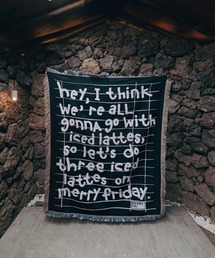 hey, I think
we're all
gonna go with
iced lattes,
so let's do
three iced
lattes on
merry friday.